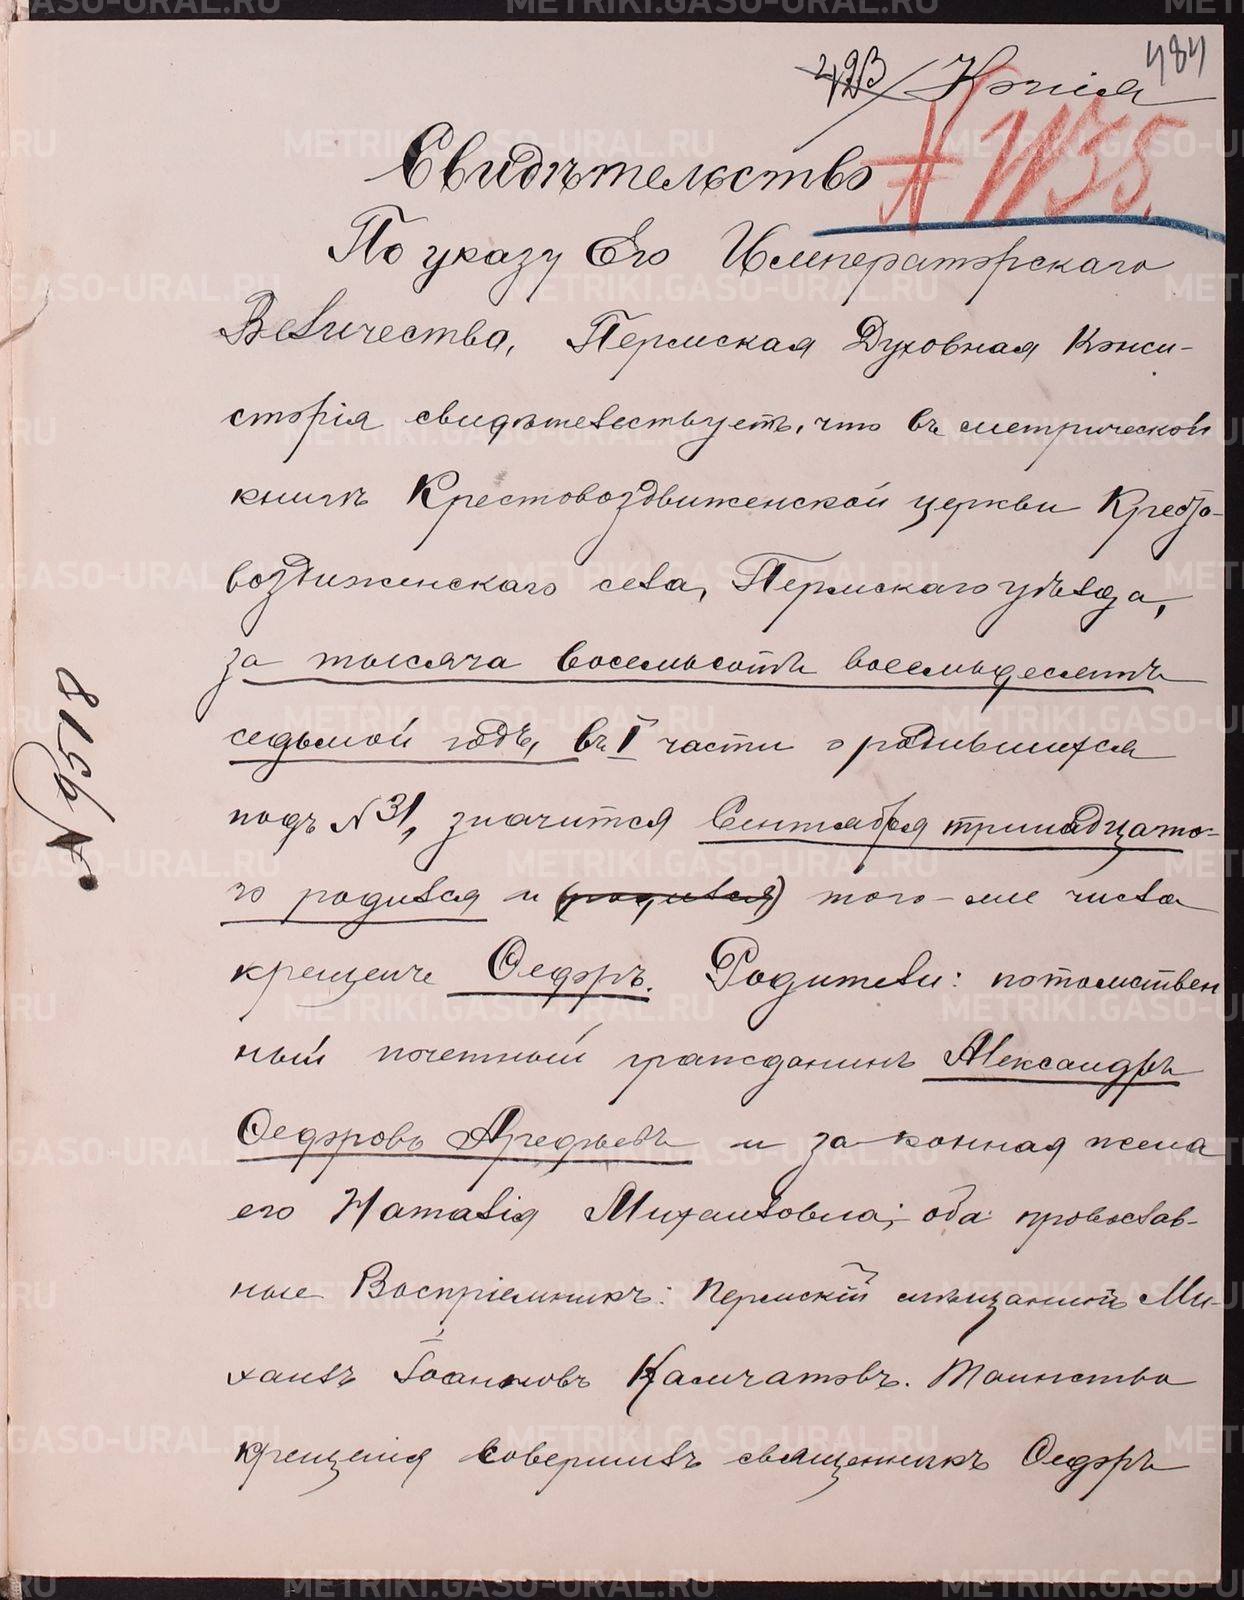 484
423 Копія
Свидѣтельство № 1135.
По указу Его Императорскаго
Величества, Пермская Духовная Конси-
сторія свидѣтельствуетъ, что въ метрической
книгѣ Крестовоздвиженской церкви Кресто-
воздвиженскаго села, Пермскаго уѣзда,
за тысяча восемьсотъ восемьдесятъ
седьмой годъ, въ I части о родившихся
подъ № 31, значится Сентября тринадцато-
го родился и (родился) того-же числа
крещенъ Ѳедоръ. Родители: потомствен
ный почетный гражданинъ Александръ
Ѳедоровъ Арефьевъ и законная жена
его Наталія Михаиловна; оба православ-
ные Воспріемникъ: Пермскій мѣщанинъ Ми-
хаилъ Іоанновъ Камчатовъ. Таинство
крещенія совершилъ священникъ Ѳедоръ
№ 9518
METRIKI.GASO-URAL.RU